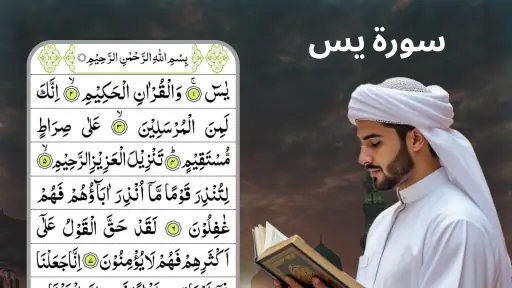 سورة يس
بِسْمِ اللهِ الرَّحْمٰنِ الرَّحِيْمِ
يٰسٓ ۚ﴿۱﴾ وَالْقُرْاٰنِ الْحَكِيْمِ ۙ﴿۲﴾ اِنَّكَ
لَمِنَ الْمُرْسَلِيْنَ ۙ﴿۳﴾ عَلٰى صِرَاطٍ
مُّسْتَقِيْمٍ ؕ﴿۴﴾ تَنْزِيْلَ الْعَزِيْزِ الرَّحِيْمِ ۙ﴿۵﴾
لِتُنْذِرَ قَوْمًا مَّاۤ اُنْذِرَ اٰبَآؤُهُمْ فَهُمْ
غٰفِلُوْنَ ﴿۶﴾ لَقَدْ حَقَّ الْقَوْلُ عَلٰۤى
اَكْثَرِهِمْ فَهُمْ لَا يُؤْمِنُوْنَ ﴿۷﴾ اِنَّا جَعَلْنَا